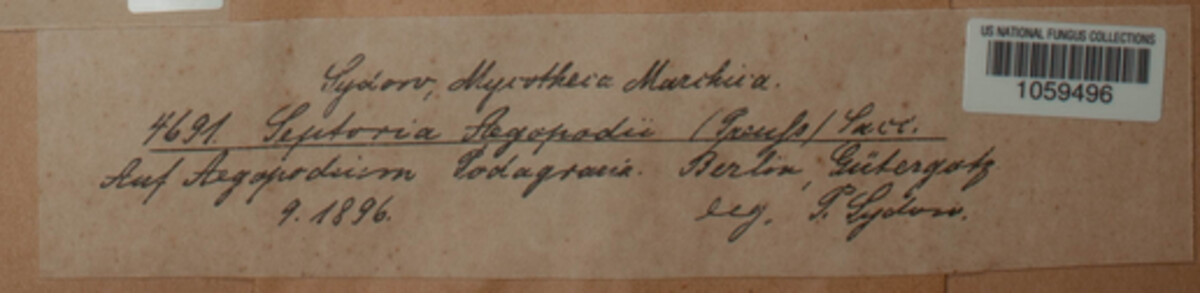 US NATIONAL FUNGUS COLLECTIONS
1059496
Sydow, Mycotheca Marchica.
4691. Septoria Aegopodii (Preuss) Sacc.
Auf Aegopodium Podagraria. Berlin, Gütergotz
9. 1896. leg. P. Sydow.